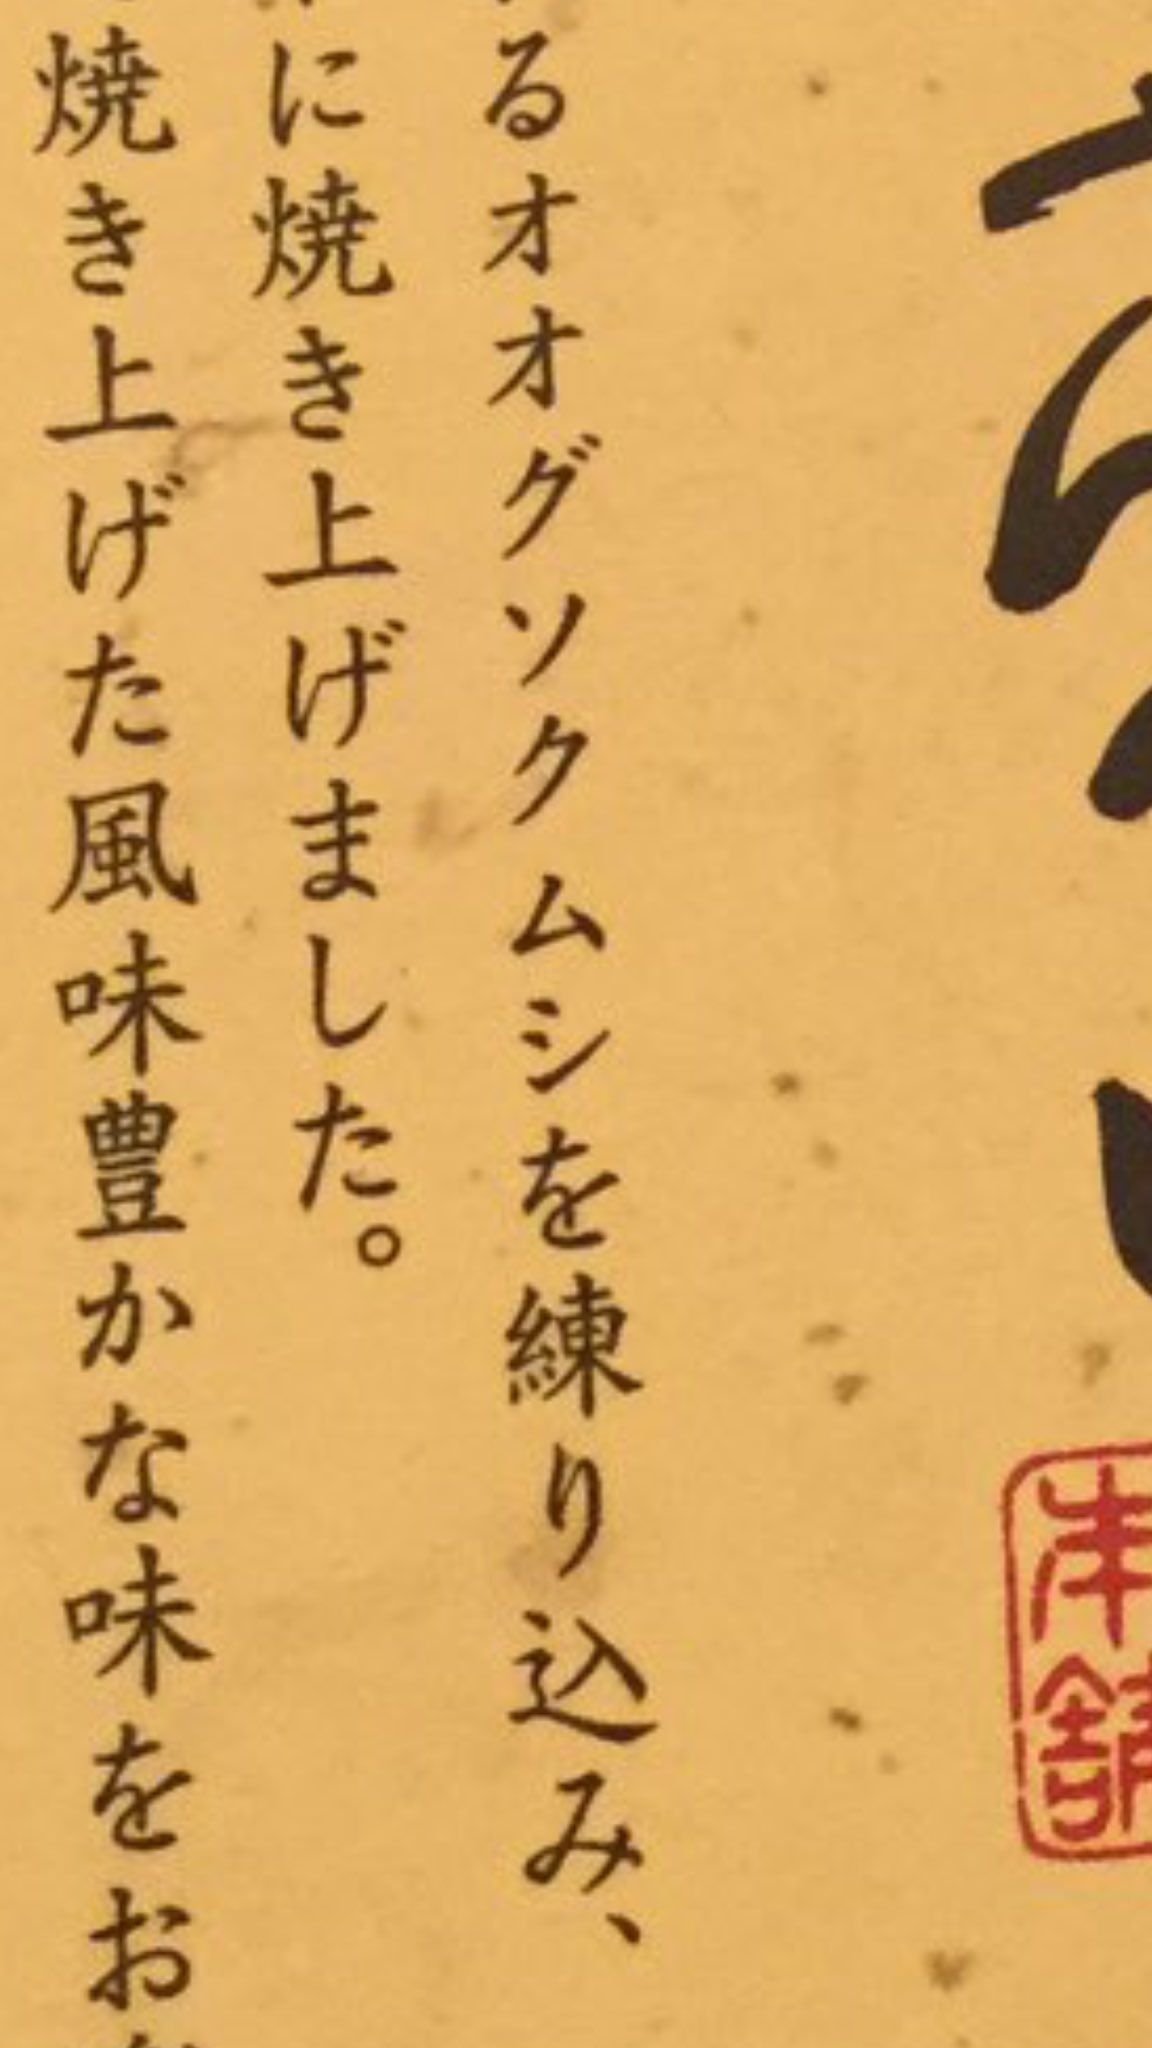 るオオグソクムシを練り込み、
に焼き上げました。
焼き上げた風味豊かな味をお
本舗